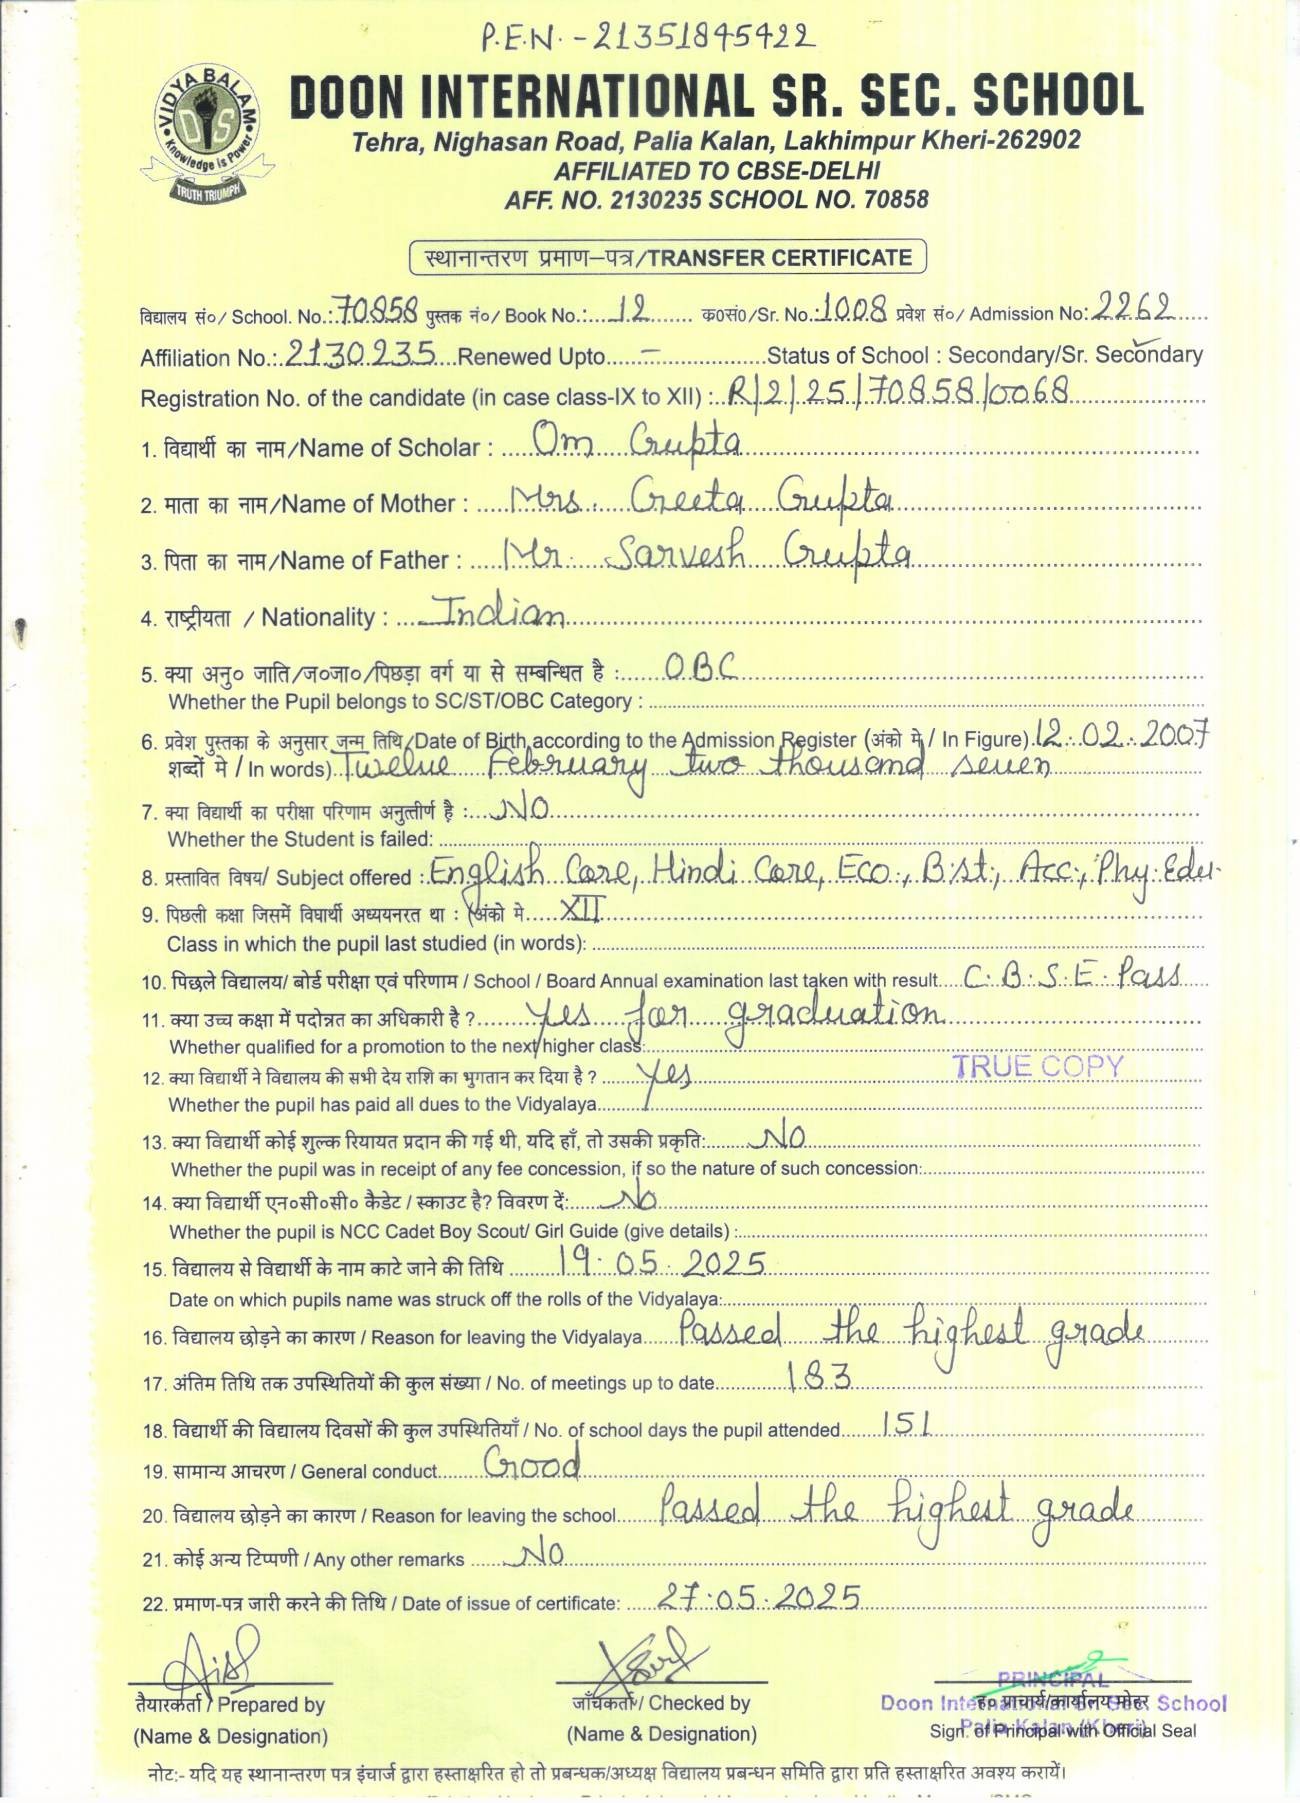 P.E.N. - 21351845422
VIDYA BALAM
DIS
Knowledge is Power
TRUTH TRIUMPH
DOON INTERNATIONAL SR. SEC. SCHOOL
Tehra, Nighasan Road, Palia Kalan, Lakhimpur Kheri-262902
AFFILIATED TO CBSE-DELHI
AFF. NO. 2130235 SCHOOL NO. 70858
स्थानान्तरण प्रमाण–पत्र/TRANSFER CERTIFICATE
विद्यालय सं०/ School. No.: 70858 पुस्तक नं०/ Book No.: 12 क0सं0/Sr. No.: 1008 प्रवेश सं०/ Admission No: 2262
Affiliation No.: 2130235 Renewed Upto - Status of School : Secondary/Sr. Secondary
Registration No. of the candidate (in case class-IX to XII) : R/2/25/70858/0068
1. विद्यार्थी का नाम/Name of Scholar : Om Gupta
2. माता का नाम/Name of Mother : Mrs. Geeta Gupta
3. पिता का नाम/Name of Father : Mr. Sarvesh Gupta
4. राष्ट्रीयता / Nationality : Indian
5. क्या अनु० जाति/ज०जा०/पिछड़ा वर्ग या से सम्बन्धित है : OBC
Whether the Pupil belongs to SC/ST/OBC Category :
6. प्रवेश पुस्तका के अनुसार जन्म तिथि/Date of Birth according to the Admission Register (अंको मे / In Figure) 12.02.2007
शब्दों मे / In words) Twelve February two thousand seven
7. क्या विद्यार्थी का परीक्षा परिणाम अनुत्तीर्ण है : NO
Whether the Student is failed:
8. प्रस्तावित विषय/ Subject offered : English Core, Hindi Core, Eco., B.st., Acc., Phy. Edu.
9. पिछली कक्षा जिसमें विघार्थी अध्ययनरत था : (अंको मे XII
Class in which the pupil last studied (in words):
10. पिछले विद्यालय/ बोर्ड परीक्षा एवं परिणाम / School / Board Annual examination last taken with result C.B.S.E. Pass
11. क्या उच्च कक्षा में पदोन्नत का अधिकारी है ? Yes for graduation
Whether qualified for a promotion to the next higher class:
TRUE COPY
12. क्या विद्यार्थी ने विद्यालय की सभी देय राशि का भुगतान कर दिया है ? Yes
Whether the pupil has paid all dues to the Vidyalaya
13. क्या विद्यार्थी कोई शुल्क रियायत प्रदान की गई थी, यदि हाँ, तो उसकी प्रकृति: NO
Whether the pupil was in receipt of any fee concession, if so the nature of such concession:
14. क्या विद्यार्थी एन०सी०सी० कैडेट / स्काउट है? विवरण दें: No
Whether the pupil is NCC Cadet Boy Scout/ Girl Guide (give details) :
15. विद्यालय से विद्यार्थी के नाम काटे जाने की तिथि 19.05.2025
Date on which pupils name was struck off the rolls of the Vidyalaya:
16. विद्यालय छोड़ने का कारण / Reason for leaving the Vidyalaya Passed the highest grade
17. अंतिम तिथि तक उपस्थितियों की कुल संख्या / No. of meetings up to date 183
18. विद्यार्थी की विद्यालय दिवसों की कुल उपस्थितियाँ / No. of school days the pupil attended 151
19. सामान्य आचरण / General conduct Good
20. विद्यालय छोड़ने का कारण / Reason for leaving the school Passed the highest grade
21. कोई अन्य टिप्पणी / Any other remarks NO
22. प्रमाण-पत्र जारी करने की तिथि / Date of issue of certificate: 27.05.2025
PRINCIPAL
तैयारकर्ता / Prepared by जाँचकर्ता / Checked by ह० प्राचार्य/कार्यालय मोहर
Doon International Sr. Sec. School
(Name & Designation) (Name & Designation) Sign. of Principal with Official Seal
Palia Kalan (Kheri)
नोट:- यदि यह स्थानान्तरण पत्र इंचार्ज द्वारा हस्ताक्षरित हो तो प्रबन्धक/अध्यक्ष विद्यालय प्रबन्धन समिति द्वारा प्रति हस्ताक्षरित अवश्य करायें।